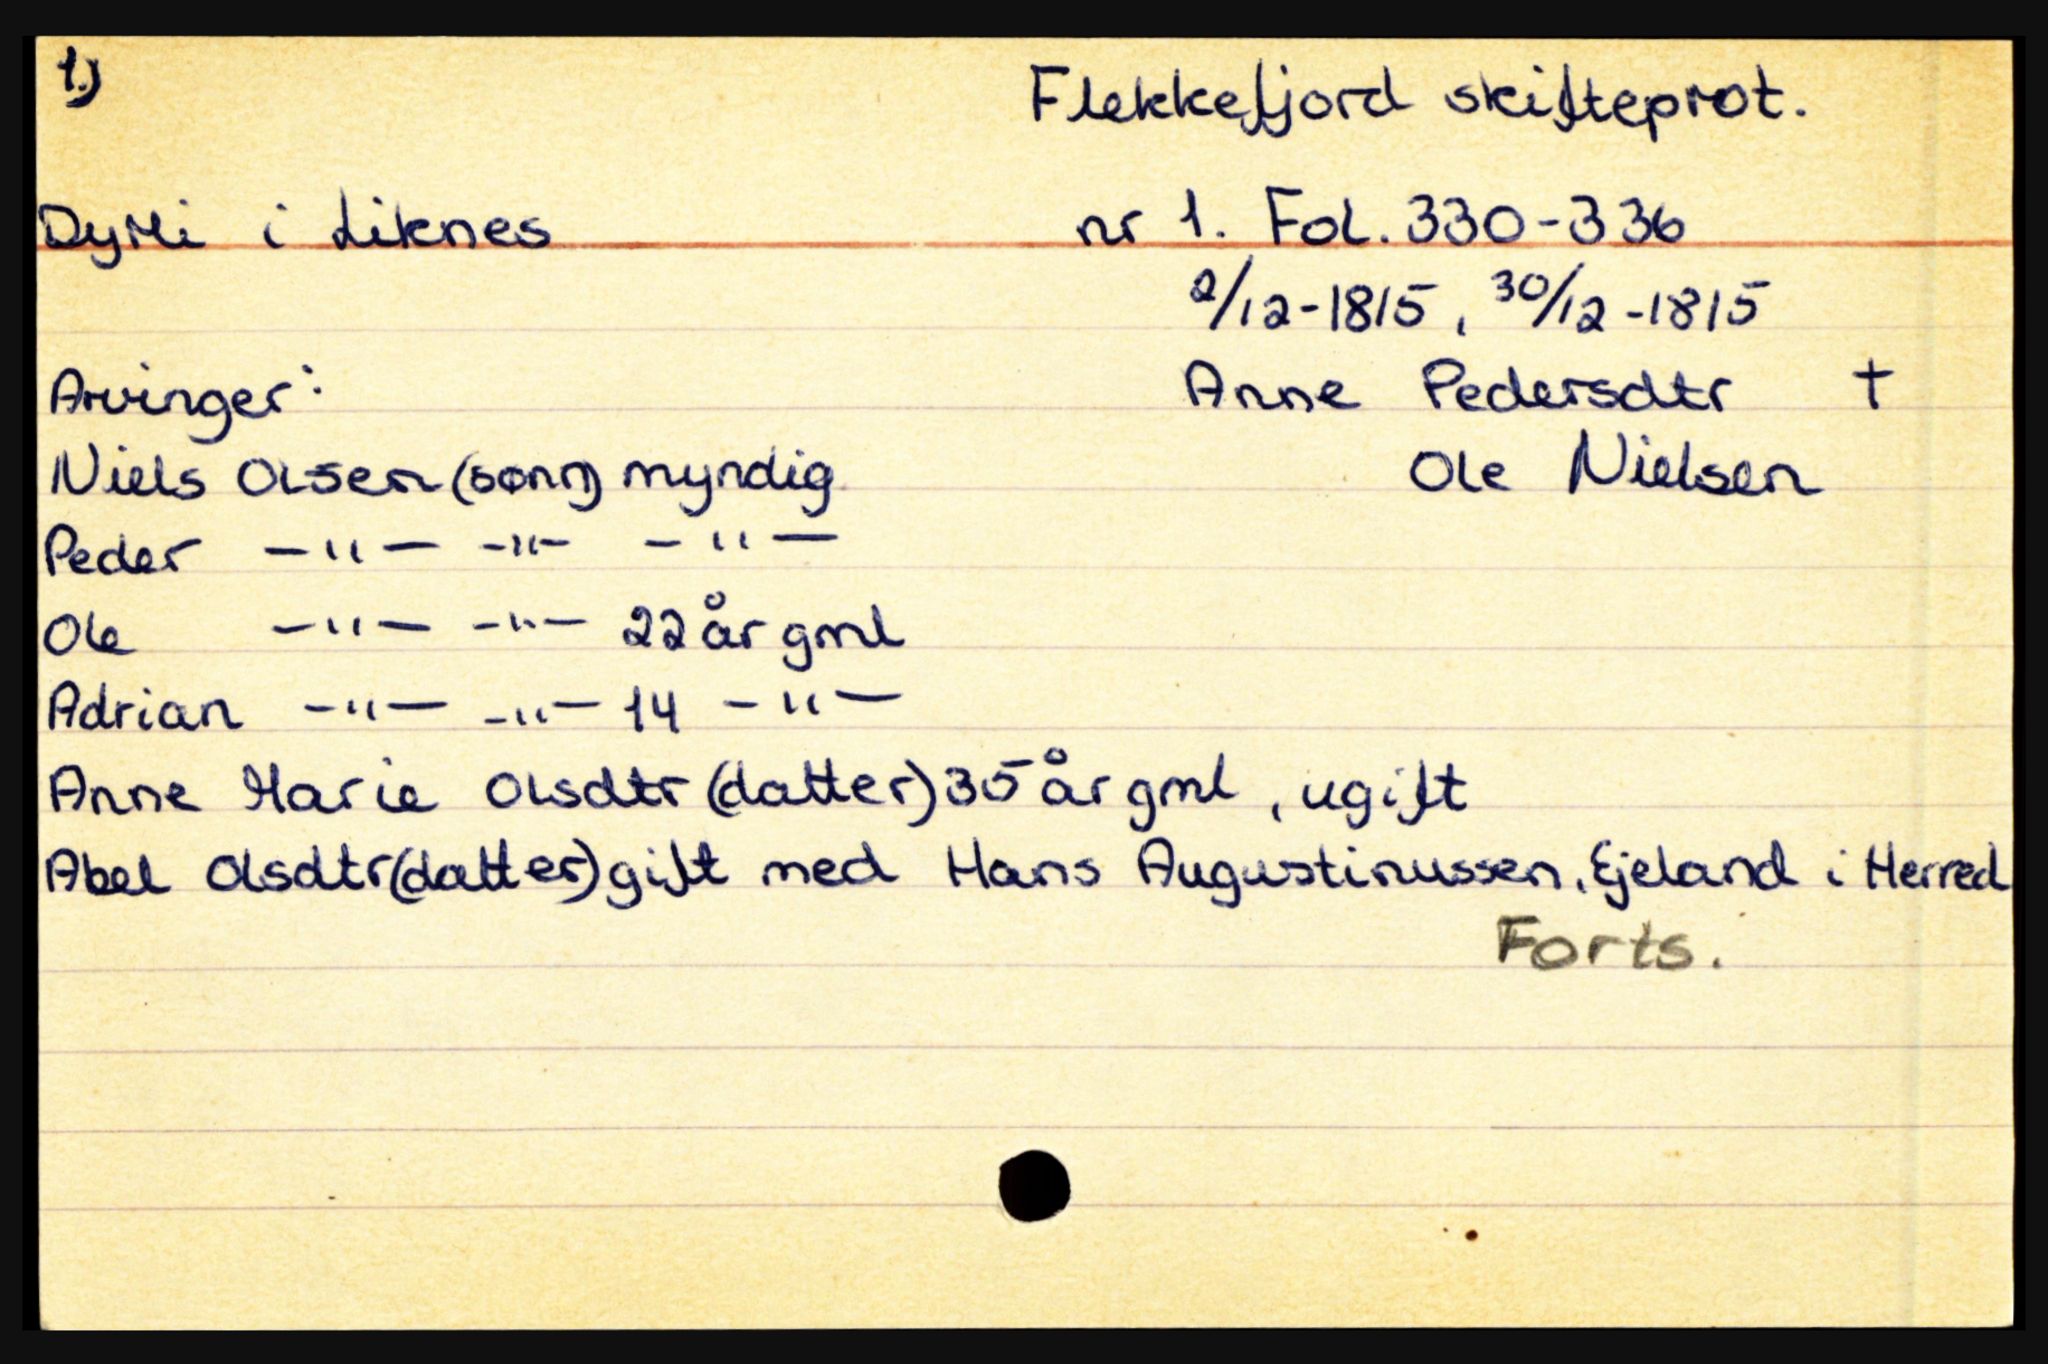 1.)
Flekkefjord skifteprot.
Dyrli i Liknes nr 1. Fol. 330-336
2/12-1815, 30/12-1815
Arvinger: Anne Pedersdtr †
Niels Olsen (sønn) myndig Ole Nielsen
Peder -"- -"- -"-
Ole -"- -"- 22 år gml
Adrian -"- -"- 14 -"-
Anne Marie Olsdtr (datter) 35 år gml, ugift
Abel Olsdtr (datter) gift med Hans Augustinussen, Ejeland i Herred
Forts.